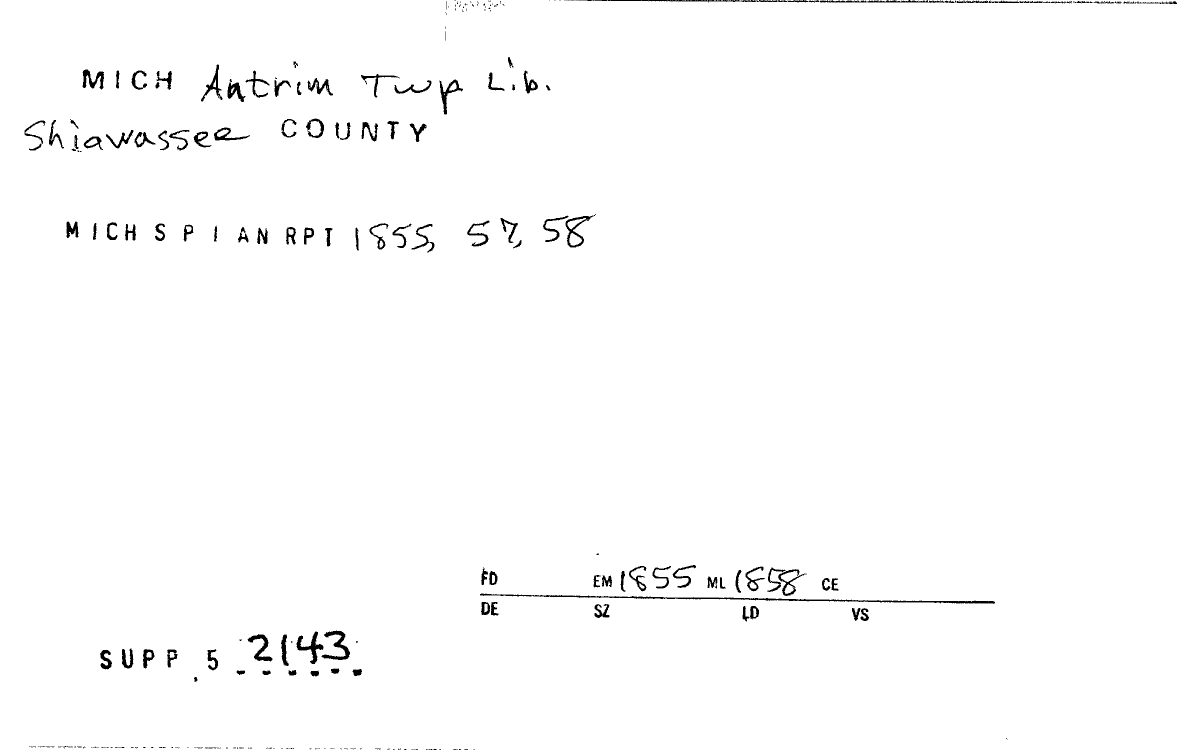 MICH Antrim Twp Lib.
Shiawassee COUNTY
MICH S P I AN RPT 1855, 57, 58
FD EM 1855 ML 1858 CE
DE SZ LD VS
SUPP. 5 2143